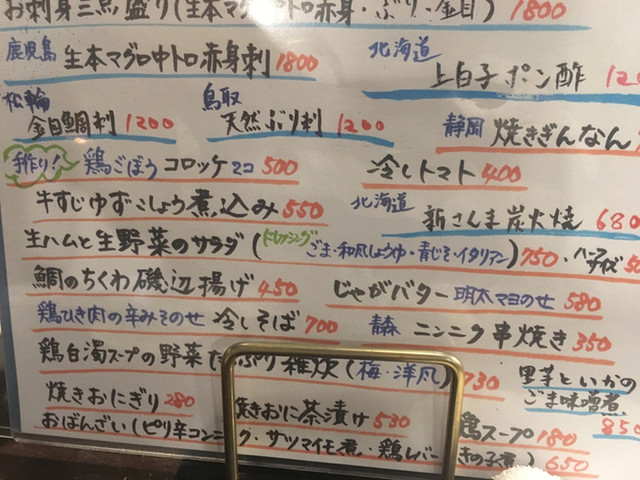 お刺身三点盛り(生本マグロ中トロ赤身・ぶり・金目) 1800
鹿児島 生本マグロ中トロ赤身刺 1800
北海道 上白子ポン酢
松輪 金目鯛刺 1200
鳥取 天然ぶり刺 1200
静岡 焼きぎんなん
手作り! 鶏ごぼうコロッケ2コ 500
冷しトマト 400
牛すじゆずこしょう煮込み 550
北海道 新さんま炭火焼 680
生ハムと生野菜のサラダ(ドレッシング ごま・和風しょうゆ・青じそ・イタリアン) 750・ハーフサイズ
鯛のちくわ磯辺揚げ 450
じゃがバター明太マヨのせ 580
鶏ひき肉の辛みそのせ冷しそば 700
青森 ニンニク串焼き 350
鶏白濁スープの野菜たっぷり雑炊(梅・洋風) 730
里芋といかの
ごま味噌煮 850
焼きおにぎり 280
焼きおに茶漬け 530
鶏スープ 180
おばんざい(ピリ辛コンニャク・サツマイモ煮・鶏レバー きの子煮) 650